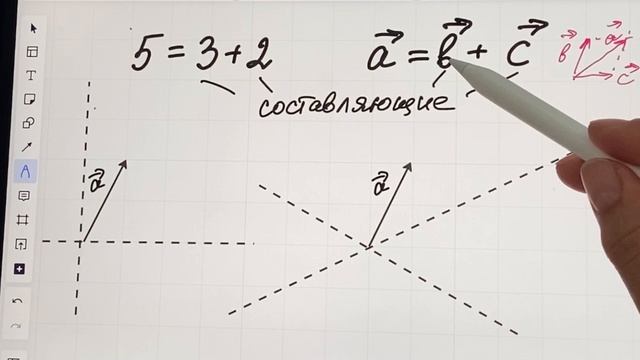 5 = 3 + 2
a⃗ = b⃗ + c⃗
составляющие
b⃗ a⃗ c⃗
a⃗
a⃗